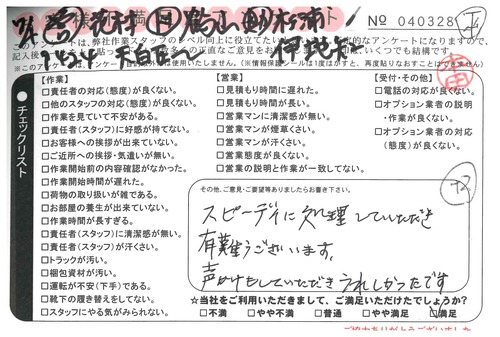 No 040328
このアンケートは、弊社作業スタッフのレベル向上に役立て
【作業】
□責任者の対応(態度)が良くない。
□他のスタッフの対応(態度)が良くない。
□作業を見ていて不安がある。
□責任者(スタッフ)に好感が持てない。
□お客様への挨拶が出来ていない。
□ご近所への挨拶・気遣いが無い。
□作業開始前の内容確認がなかった。
□作業開始時間が遅れた。
□荷物の取り扱いが雑である。
□お部屋の養生が出来ていない。
□作業時間が長すぎる。
□責任者(スタッフ)に清潔感が無い。
□責任者(スタッフ)が汗くさい。
□トラックが汚い。
□梱包資材が汚い。
□運転が不安(下手)である。
□靴下の履き替えをしてない。
□スタッフにやる気がみられない。
【営業】
□見積もり時間に遅れた。
□見積もり時間が長い。
□営業マンに清潔感が無い。
□営業マンが煙草くさい。
□営業マンが汗くさい。
□営業態度が良くない。
□営業の説明と作業が一致してない。
【受付・その他】
□電話の対応が良くない。
□オプション業者の説明
・作業が良くない。
□オプション業者の対応
(態度)が良くない。
チェックリスト
その他、ご意見・ご要望等ありましたらお書き下さい。
スピーディに処理していただき
有難うございます。
声かけもしていただきうれしかったです
☆当社をご利用いただきまして、ご満足いただけたでしょうか?
□不満 □やや不満 □普通 □やや満足 ☑満足
ご協力ありがとうございました